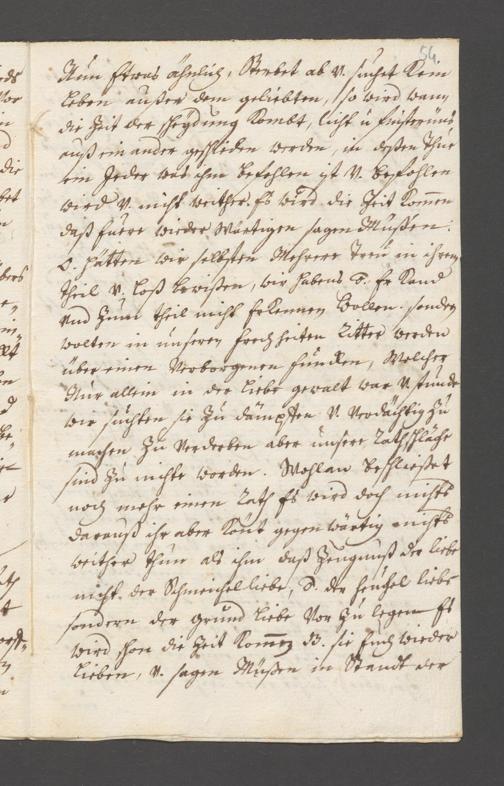 54.
Nun etwas ähnlich, Sterbet ab v. suchet kein
leben außer dem geliebten, so wird wann
die Zeit der scheydung kombt, licht u finsternus
auß ein ander geschieden werden, in deßen thue
ein Jeder was ihm befohlen ist v. befohlen
wird v. nicht weither. Es wird die Zeit kommen
daß Euere wieder wärtigen sagen Müßen:
O. hätten wir selbsten Mehrere treu in ihrem
theil v. Loß bewißen, wir habens
und Zum theil nicht Erkennen wollen. sonder
wolten in unseren frechheiten Ritter werden
über einen Verborgenen funcken, Welcher
Nur allein in der liebe gewalt war v. stunde
wir suchten sie Zu dämpffen v. Verdächtig Zu
machen Zu Verderben aber unsere Rathschläge
sind Zu nichte worden. Wohlan beschließet
noch mehr einen Rath Es wird doch nichts
darauß ihr aber könt gegenwärtig nichts
weither thun als ihm daß Zeugnuß der liebe
nicht der Schmeichel liebe, der heuchel liebe
sondern der grund liebe Vor Zu legen Es
wird schon die Zeit kommen sie Euch wieder
lieben, v. sagen Müßen in Standt der